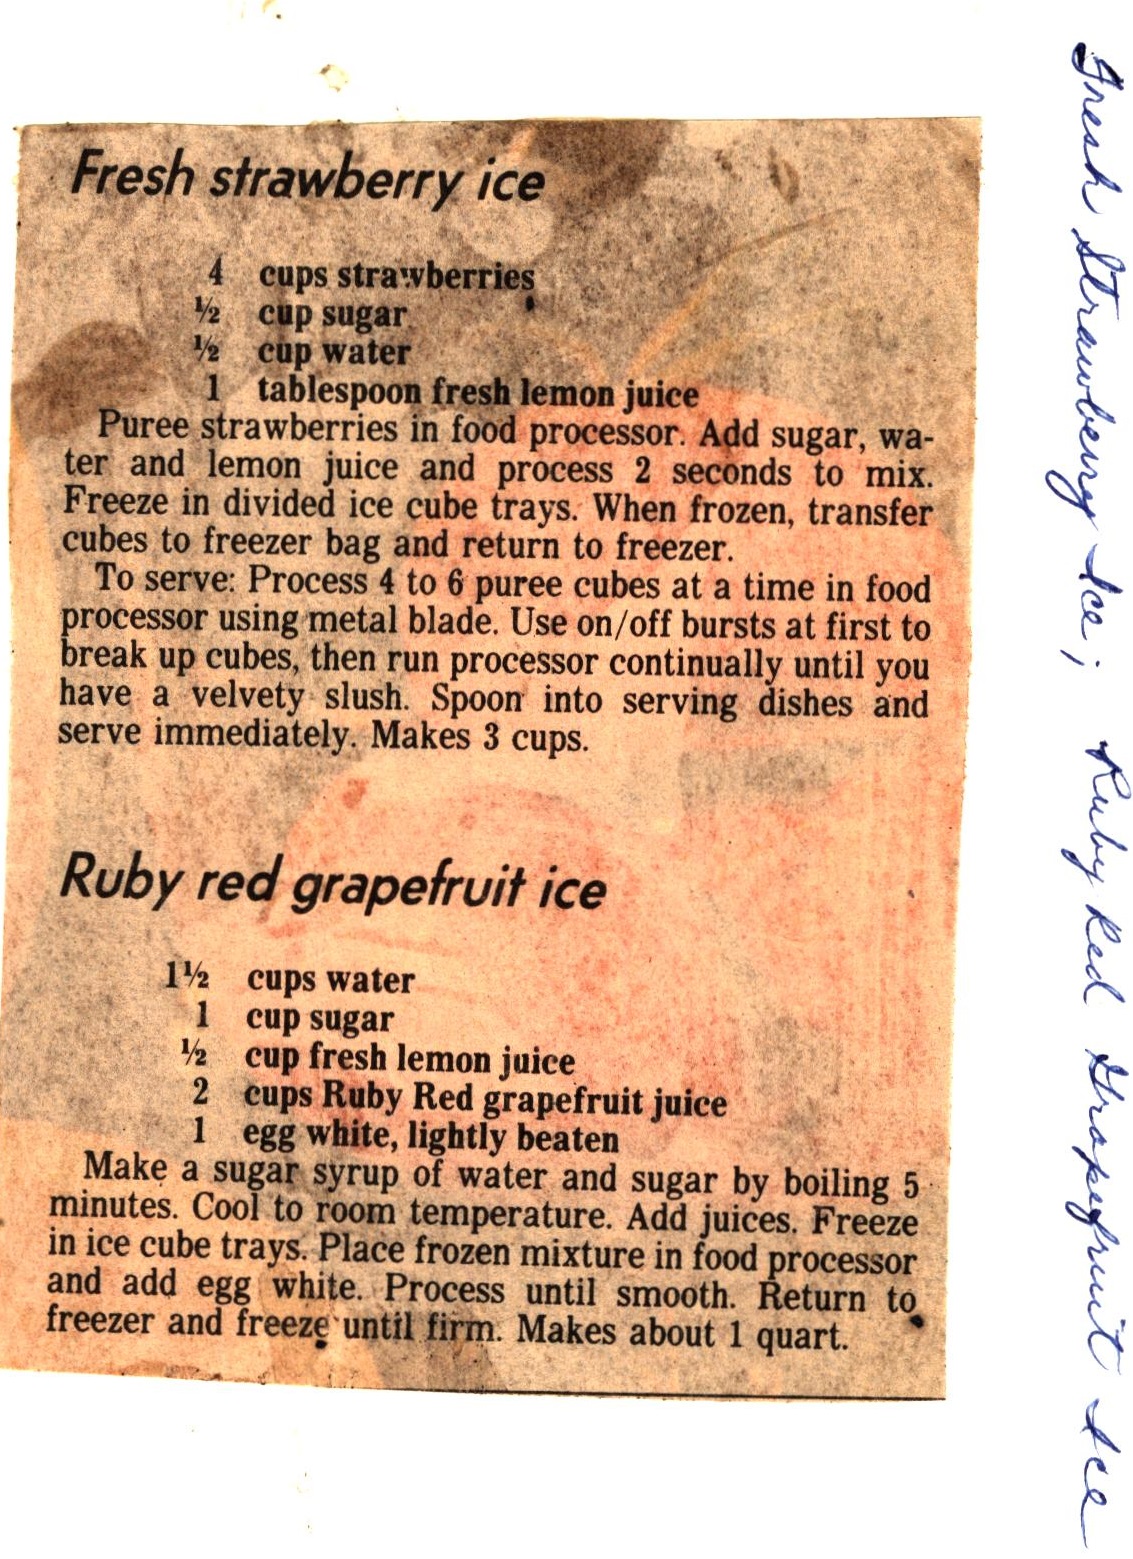 Fresh strawberry ice
4 cups strawberries
½ cup sugar
½ cup water
1 tablespoon fresh lemon juice
Puree strawberries in food processor. Add sugar, wa-
ter and lemon juice and process 2 seconds to mix.
Freeze in divided ice cube trays. When frozen, transfer
cubes to freezer bag and return to freezer.
To serve: Process 4 to 6 puree cubes at a time in food
processor using metal blade. Use on/off bursts at first to
break up cubes, then run processor continually until you
have a velvety slush. Spoon into serving dishes and
serve immediately. Makes 3 cups.
Ruby red grapefruit ice
1½ cups water
1 cup sugar
½ cup fresh lemon juice
2 cups Ruby Red grapefruit juice
1 egg white, lightly beaten
Make a sugar syrup of water and sugar by boiling 5
minutes. Cool to room temperature. Add juices. Freeze
in ice cube trays. Place frozen mixture in food processor
and add egg white. Process until smooth. Return to
freezer and freeze until firm. Makes about 1 quart.
Fresh Strawberry Ice; Ruby Red Grapefruit Ice